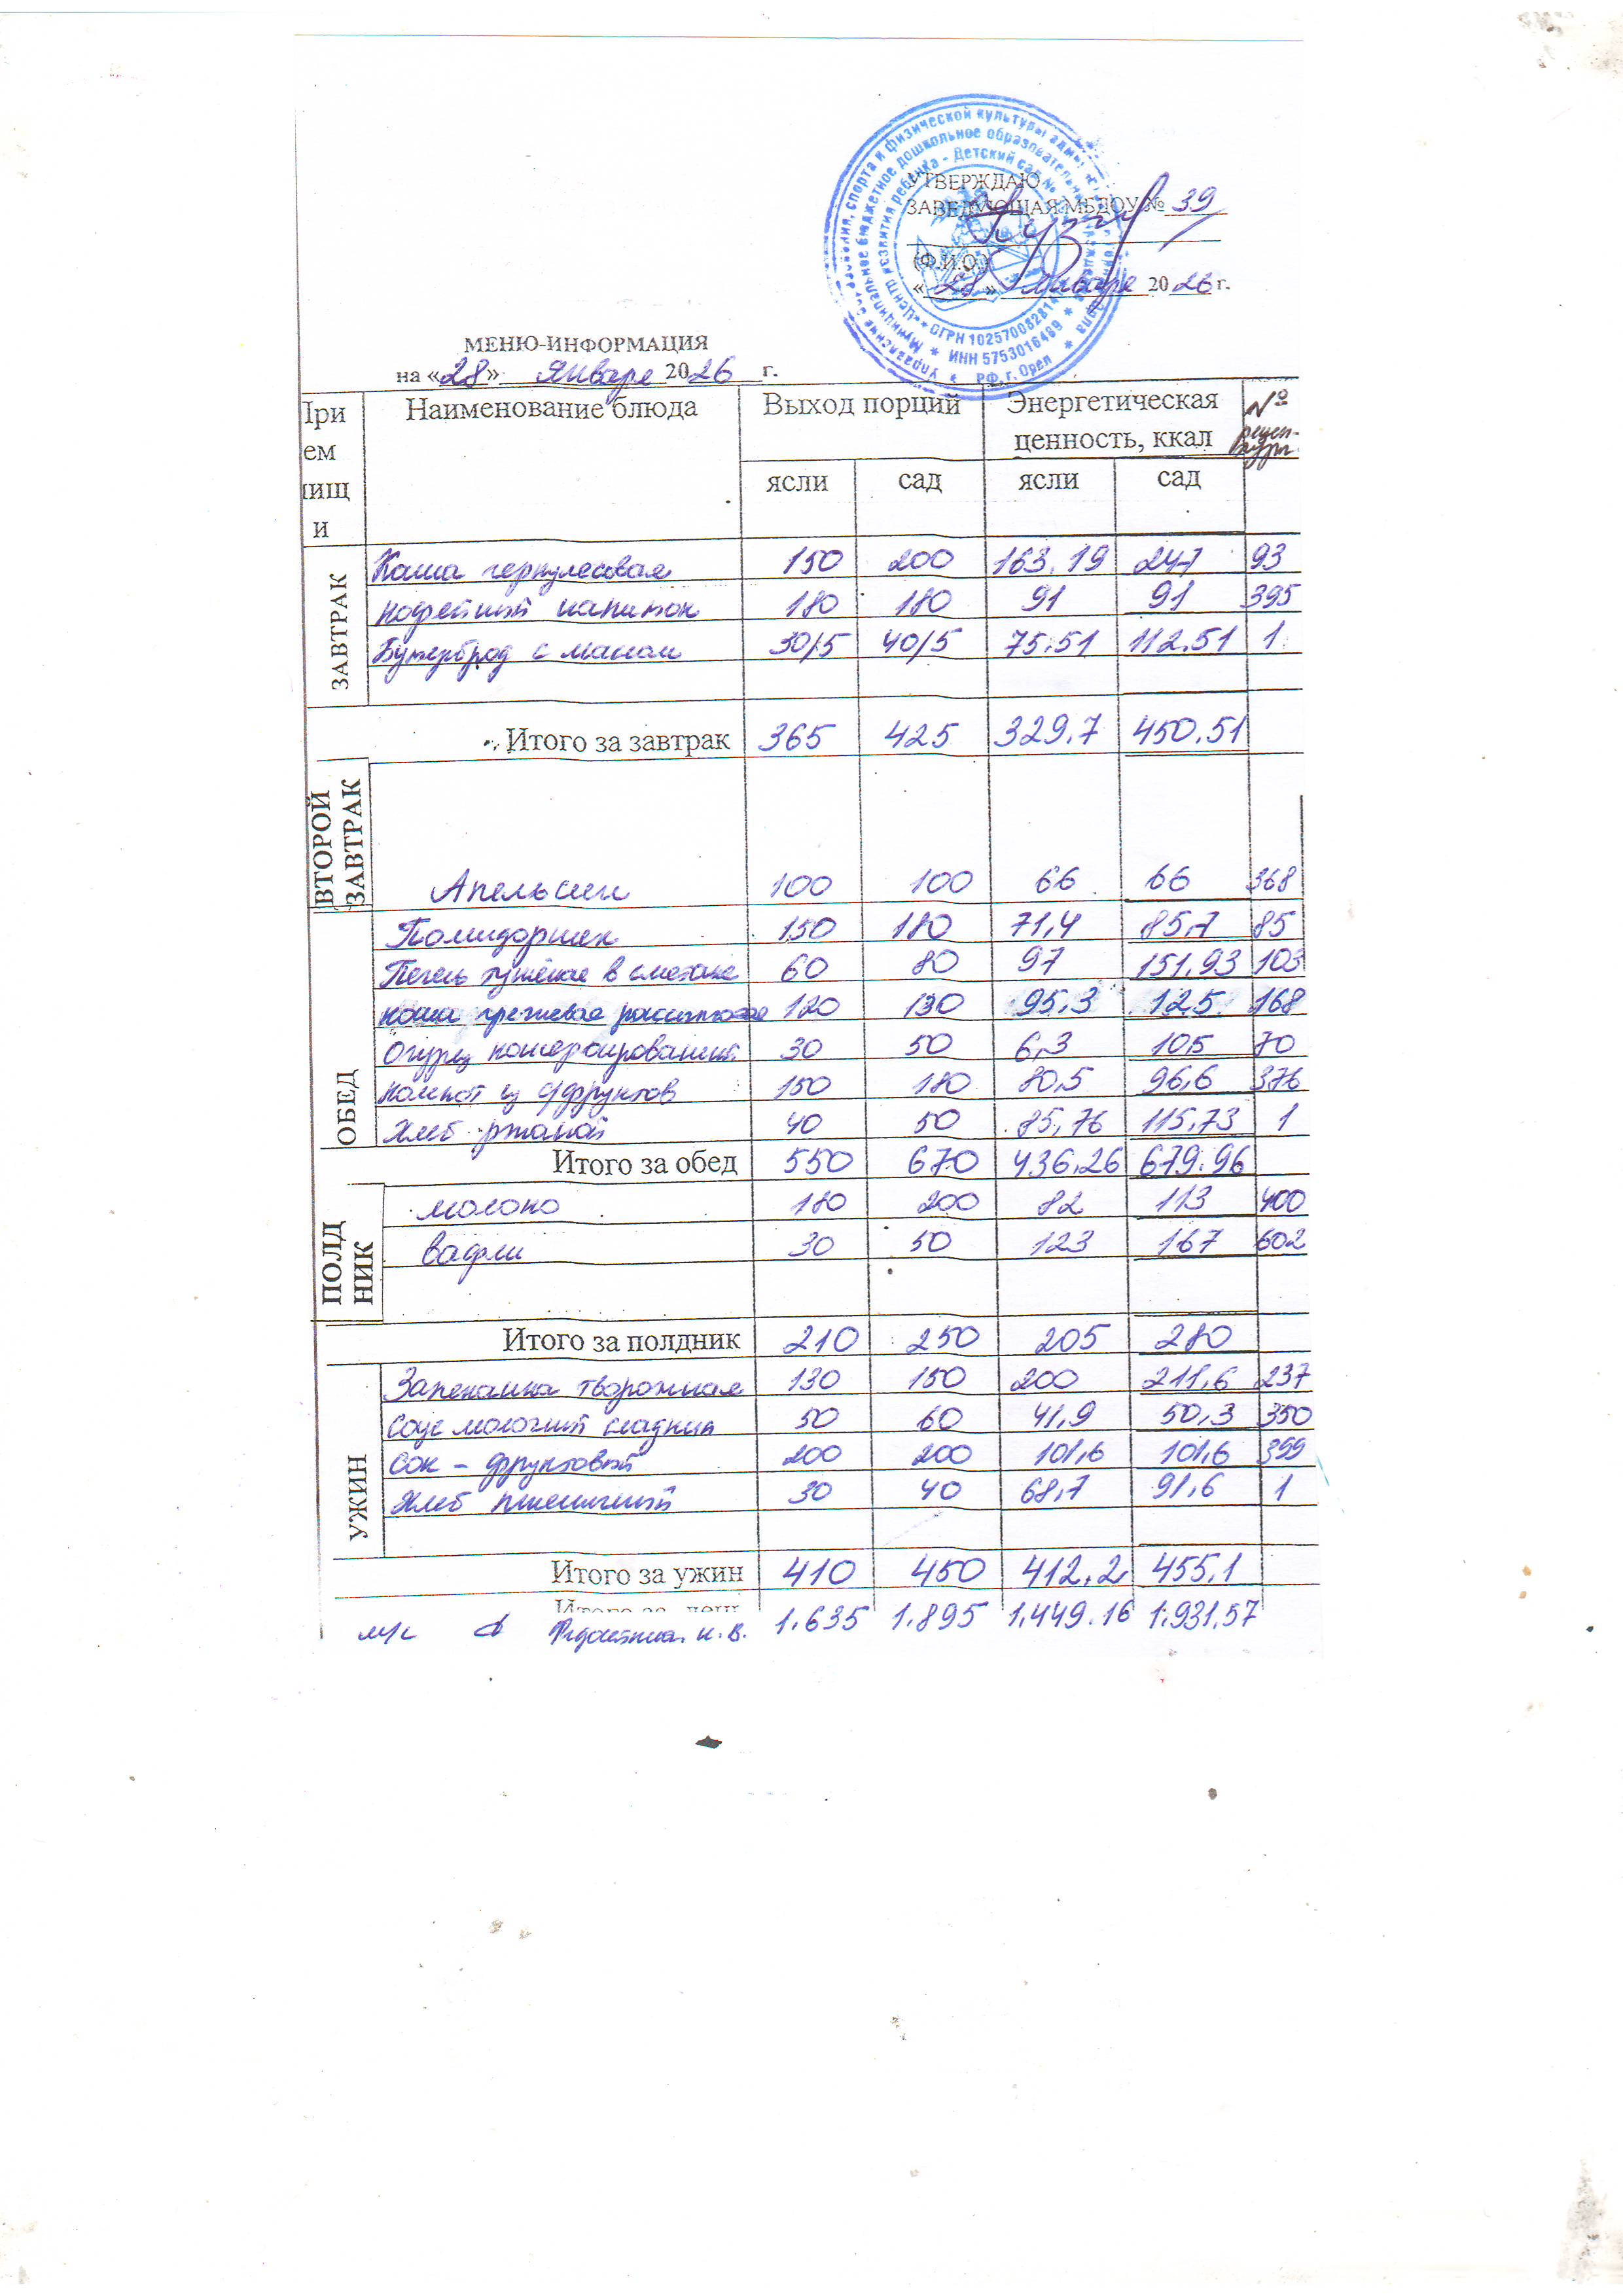 УТВЕРЖДАЮ
ЗАВЕДУЮЩАЯ МБДОУ № 39
(Ф.И.О.)
« 28 » января 20 26 г.
ОГРН 102570082814 * ИНН 5753016469 * РФ, г. Орел
МЕНЮ-ИНФОРМАЦИЯ
на «28» Января 20 26 г.
При ем пищ и Наименование блюда Выход порций Энергетическая ценность, ккал №
ясли сад ясли сад
ЗАВТРАК
Каша геркулесовая 150 200 163.19 247 93
кофейный напиток 180 180 91 91 395
Бутерброд с маслом 30/5 40/5 75.51 112.51 1
Итого за завтрак 365 425 329.7 450.51
ВТОРОЙ ЗАВТРАК
Апельсин 100 100 66 66 368
ОБЕД
150 180 71,4 85,7 85
Печень тушёная в сметане 60 80 97 151,93 103
каша гречневая рассыпчатая 120 130 95,3 125 168
Огурец консервированный 30 50 6,3 10,5 70
компот из с/фруктов 150 180 80,5 96,6 376
Хлеб ржаной 40 50 85,76 115,73 1
Итого за обед 550 670 436.26 679.96
ПОЛД НИК
молоко 180 200 82 113 400
вафли 30 50 123 167 602
Итого за полдник 210 250 205 280
УЖИН
Запеканка творожная 130 150 200 211,6 237
Соус молочный сладкий 50 60 41,9 50,3 350
Сок - фруктовый 200 200 101,6 101,6 399
Хлеб пшеничный 30 40 68,7 91,6 1
Итого за ужин 410 450 412,2 455,1
Итого за день 1.635 1.895 1.449.16 1.931,57
м/с н.в.